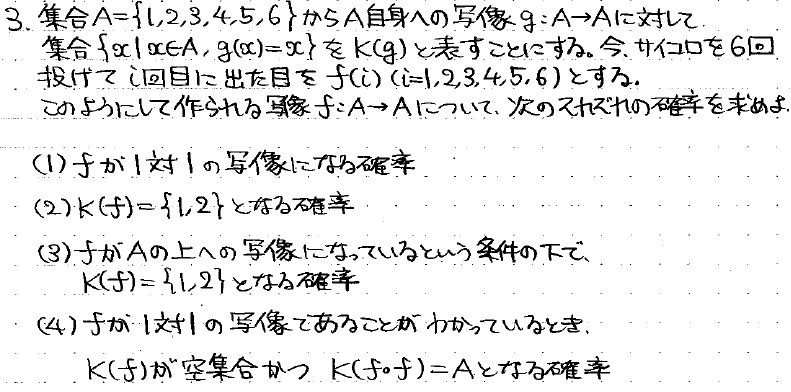 3. 集合A={1,2,3,4,5,6}からA自身への写像g:A→Aに対して
集合{x|x∈A, g(x)=x}をK(g)と表すことにする。今、サイコロを6回
投げてi回目に出た目をf(i)(i=1,2,3,4,5,6)とする。
このようにして作られる写像f:A→Aについて、次のそれぞれの確率を求めよ.
(1)fが1対1の写像になる確率
(2)K(f)={1,2}となる確率
(3)fがAの上への写像になっているという条件の下で、
K(f)={1,2}となる確率
(4)fが1対1の写像であることがわかっているとき.
K(f)が空集合かつ K(f∘f)=Aとなる確率